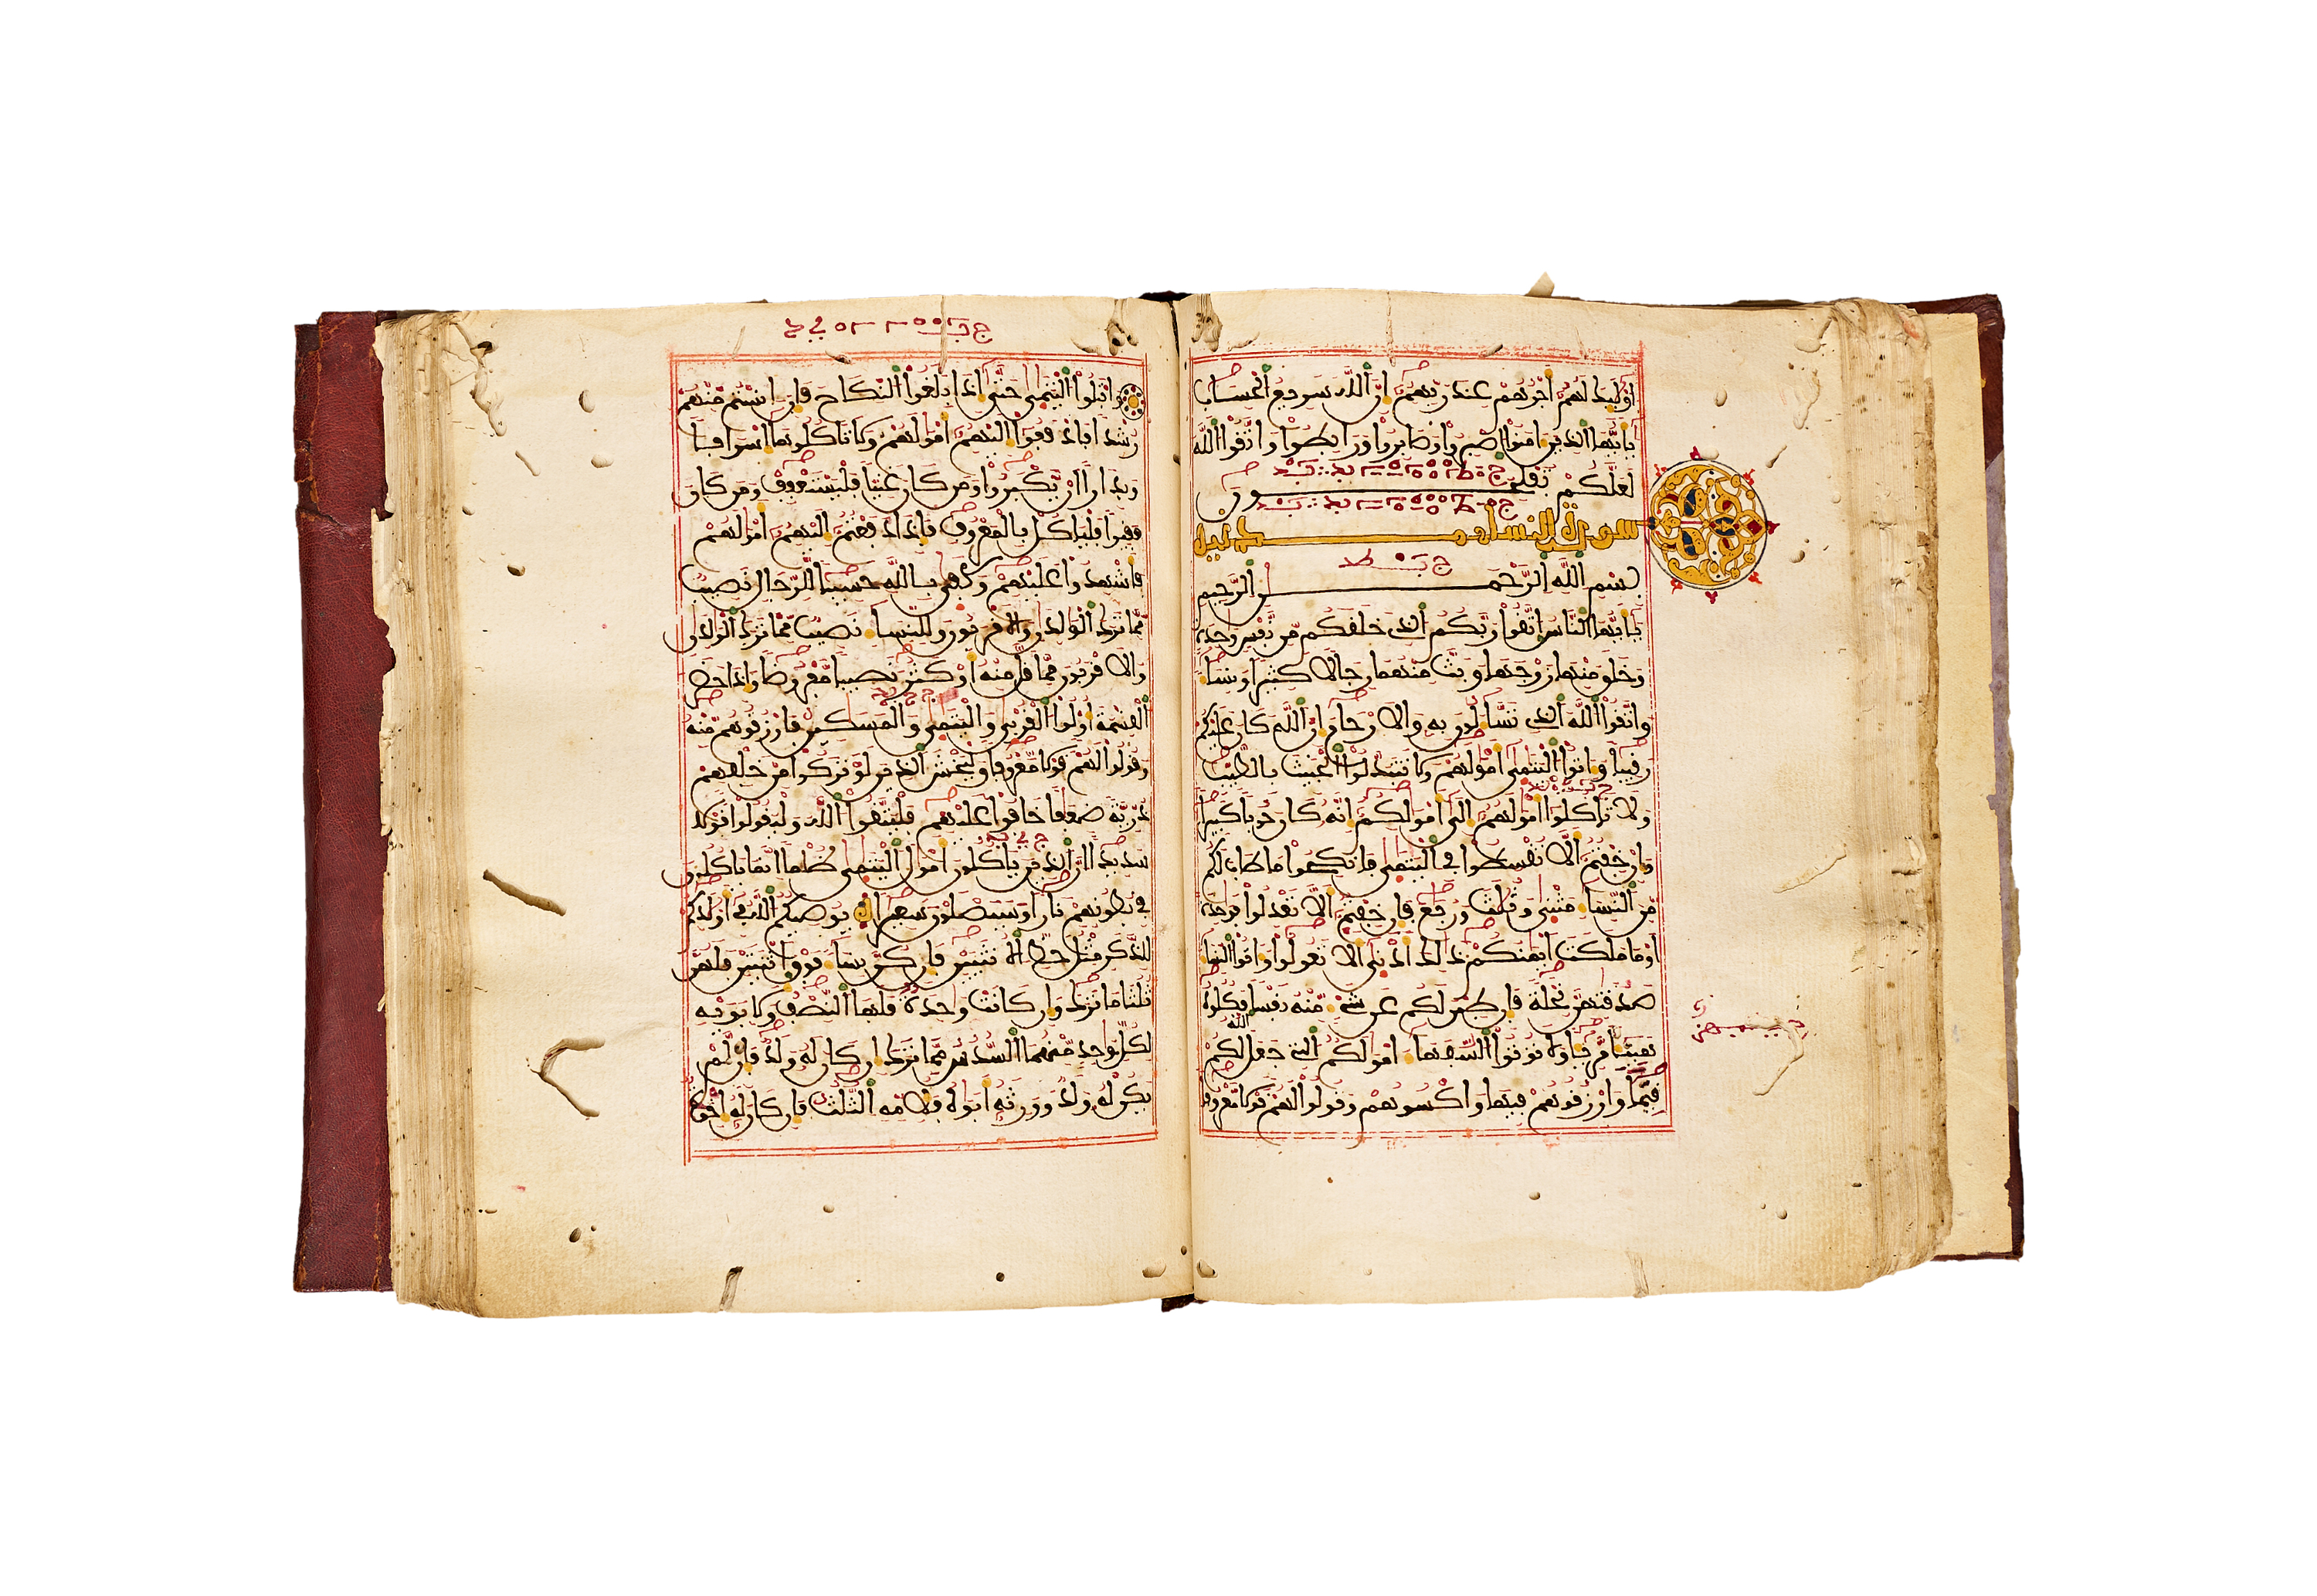 اوليك لهم أجرهم عند ربهم إن الله سريع الحساب
يايها الذين ءامنوا اصبروا وصابروا ورابطوا واتقوا الله
لعلكم تفلحون
سورة النساء مدنية
بسم الله الرحمن الرحيم
يايها الناس اتقوا ربكم الذي خلفكم من نفس وحدة
وخلق منها زوجها وبث منهما رجالا كثيرا ونساء
واتقوا الله الذي تساءلون به والارحام إن الله كان عليكم
رقيبا وءاتوا اليتمى أمولهم ولا تتبدلوا الخبيث بالطيب
ولا تاكلوا أمولهم إلى أمولكم إنه كان حوبا كبيرا
وإن خفتم ألا تقسطوا في اليتمى فانكحوا ما طاب لكم
من النساء مثنى وثلث وربع فإن خفتم ألا تعدلوا فوحدة
أو ما ملكت أيمنكم ذلك أدنى ألا تعولوا وءاتوا النساء
صدقتهن نحلة فإن طبن لكم عن شيء منه نفسا فكلوه
هنيئا مريئا ولا توتوا السفهاء امولكم التي جعل الله لكم
قيما وارزقوهم فيها واكسوهم وقولوا لهم قولا معروفا
وابتلوا اليتمى حتى إذا بلغوا النكاح فإن انستم منهم
رشدا فادفعوا إليهم أمولهم ولا تاكلوها إسرافا
وبدارا ان يكبروا ومن كان غنيا فليستعفف ومن كان
فقيرا فلياكل بالمعروف فإذا دفعتم إليهم أمولهم
فأشهدوا عليهم وكفى بالله حسيبا للرجال نصيب
مما ترك الولدن والاقربون وللنساء نصيب مما ترك الولدن
والاقربون مما قل منه أو كثر نصيبا مفروضا وإذا حضر
القسمة أولوا القربى واليتمى والمسكين فارزقوهم منه
وقولوا لهم قولا معروفا وليخش الذين لو تركوا من خلفهم
ذرية ضعفا خافوا عليهم فليتقوا الله وليقولوا قولا
سديدا إن الذين ياكلون أمول اليتمى ظلما إنما ياكلون
في بطونهم نارا وسيصلون سعيرا يوصيكم الله في أولدكم
للذكر مثل حظ الانثيين فإن كن نساء فوق اثنتين فلهن
ثلثا ما ترك وإن كانت وحدة فلها النصف ولابويه
لكل وحد منهما السدس مما ترك إن كان له ولد فإن لم
يكن له ولد وورثه أبوه فلامه الثلث فإن كان له إخوة